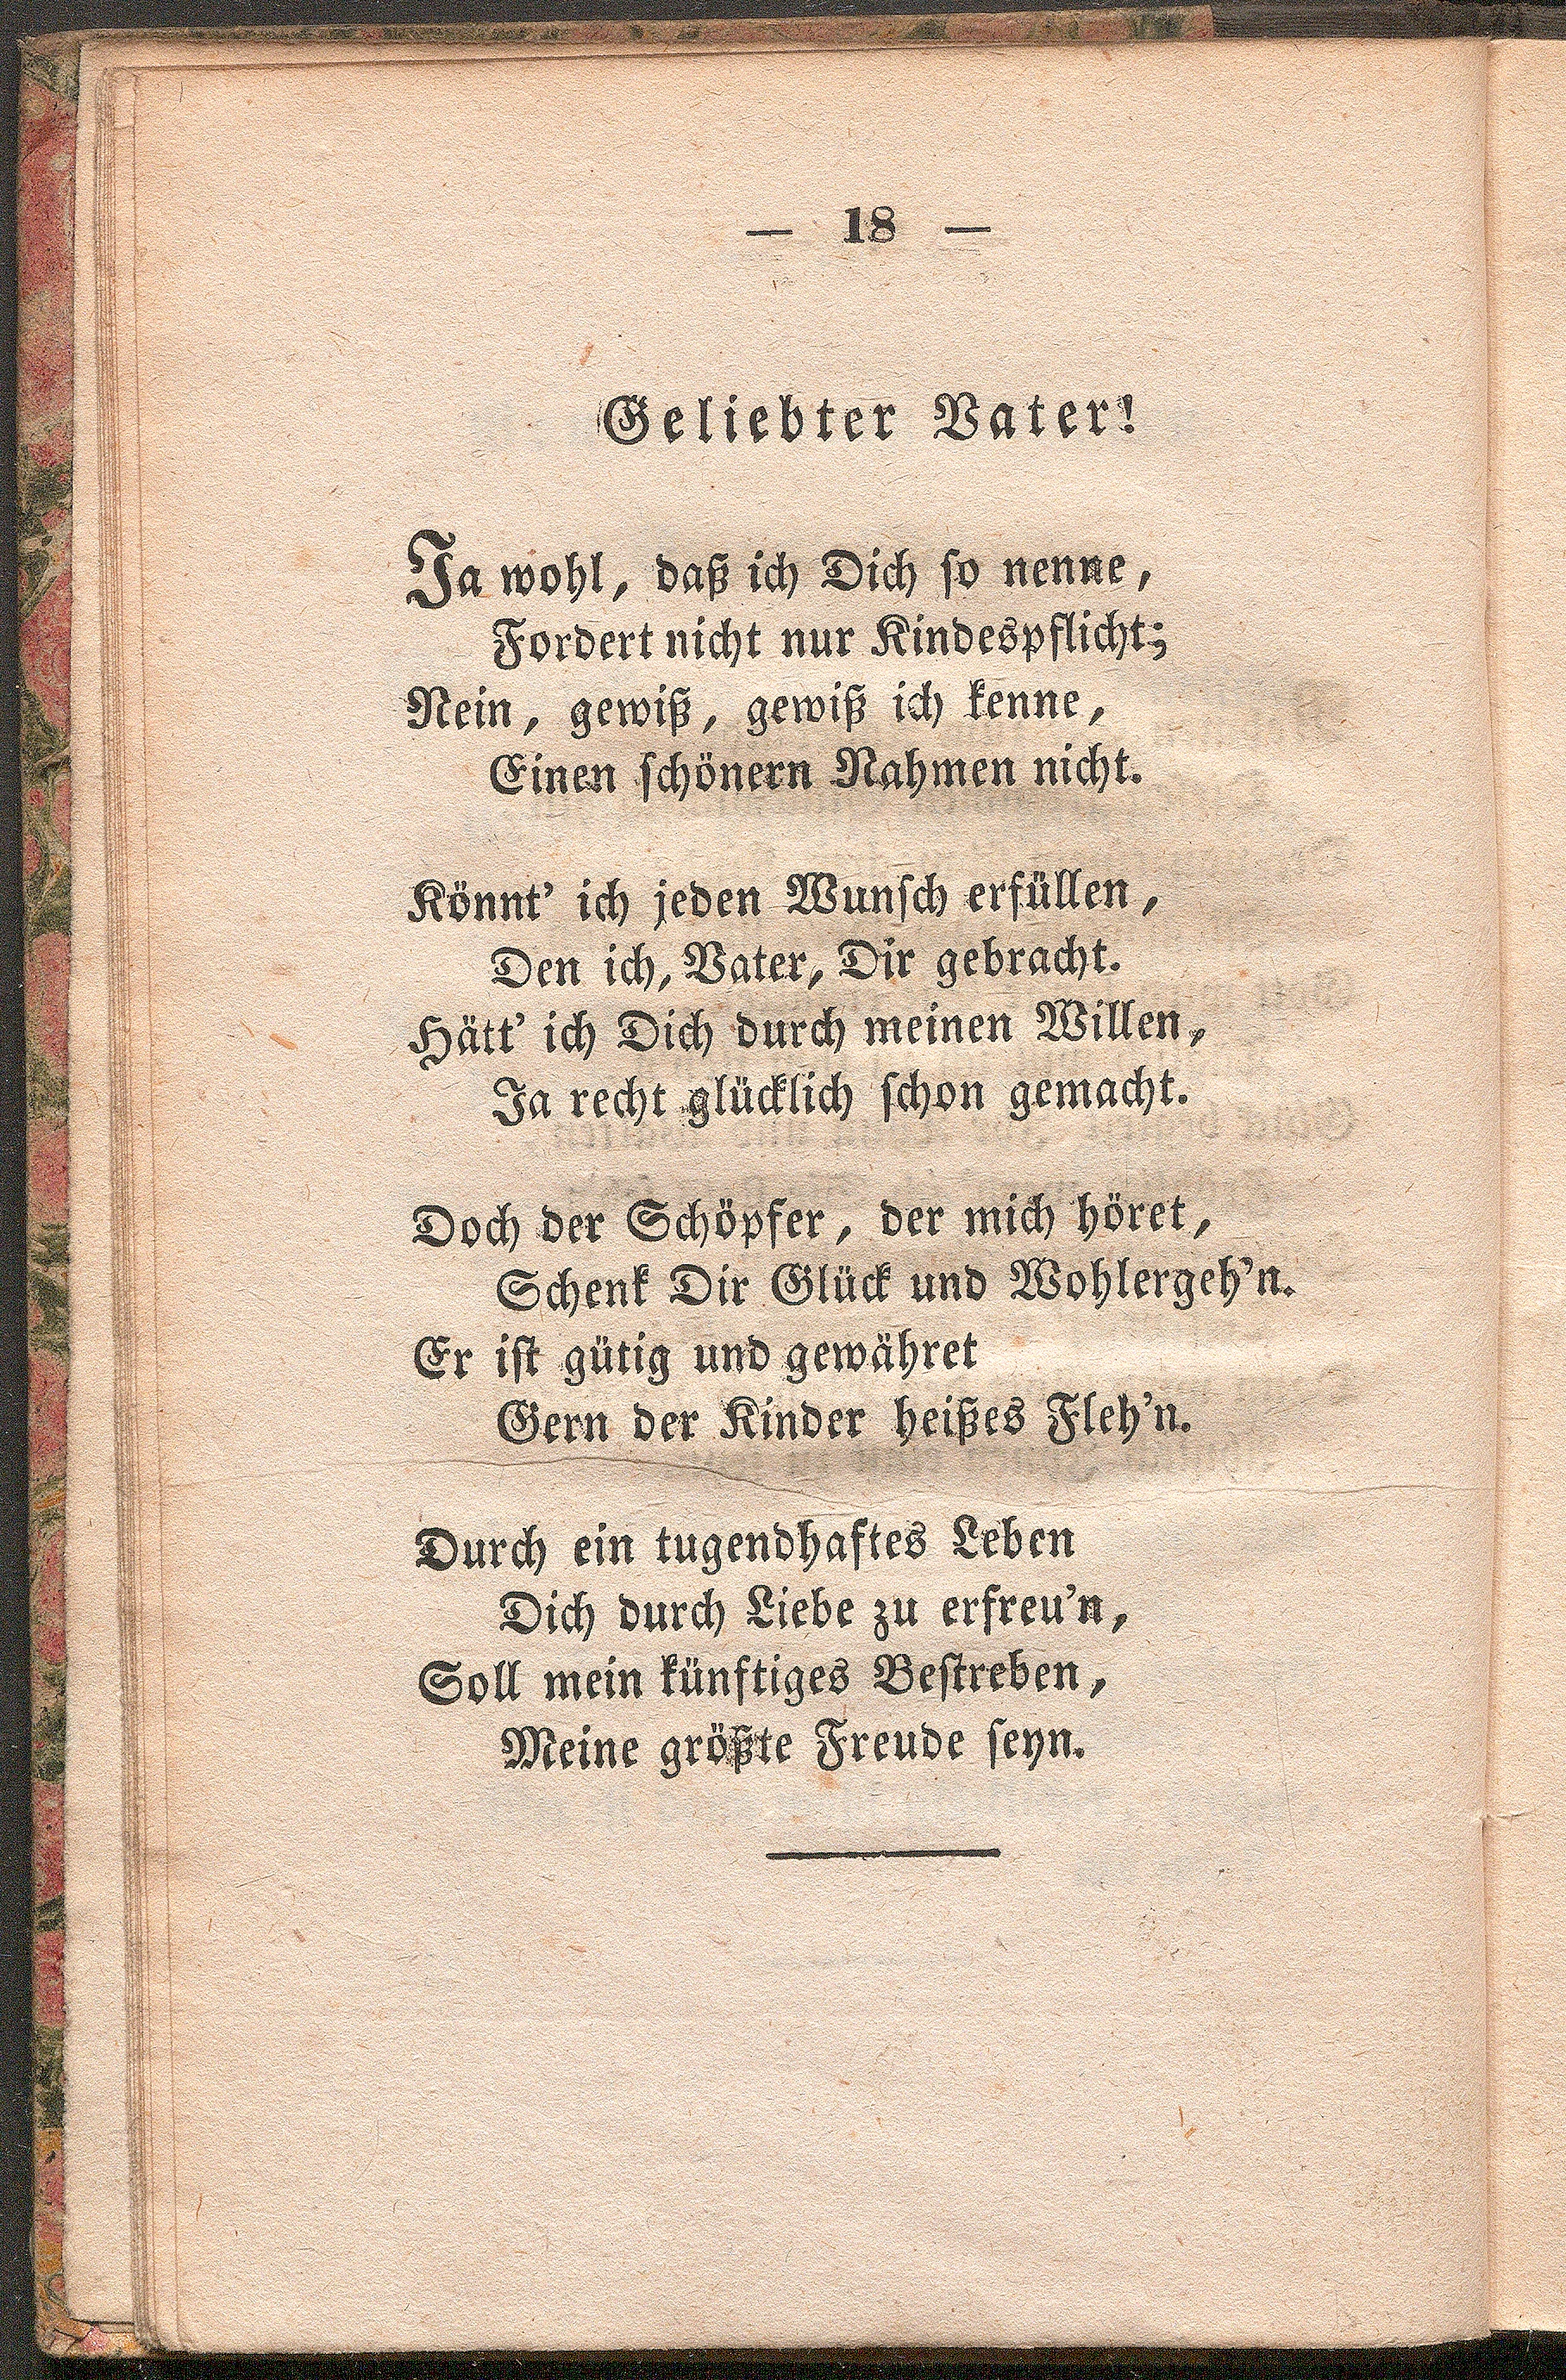 — 18 —
Geliebter Vater!
Ja wohl, daß ich Dich ſo nenne,
Fordert nicht nur Kindespflicht;
Nein, gewiß, gewiß ich kenne,
Einen ſchönern Nahmen nicht.
Könnt' ich jeden Wunſch erfüllen,
Den ich, Vater, Dir gebracht.
Hätt' ich Dich durch meinen Willen,
Ja recht glücklich ſchon gemacht.
Doch der Schöpfer, der mich höret,
Schenk Dir Glück und Wohlergeh'n.
Er iſt gütig und gewähret
Gern der Kinder heißes Fleh'n.
Durch ein tugendhaftes Leben
Dich durch Liebe zu erfreu'n,
Soll mein künftiges Beſtreben,
Meine größte Freude ſeyn.